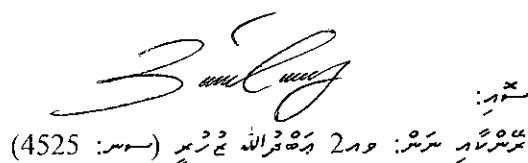 ސޮއި:
ރޭންކާއި ނަން: ވއ2 ޢަބްދުﷲ ޒުހުރީ (ސނ: 4525)